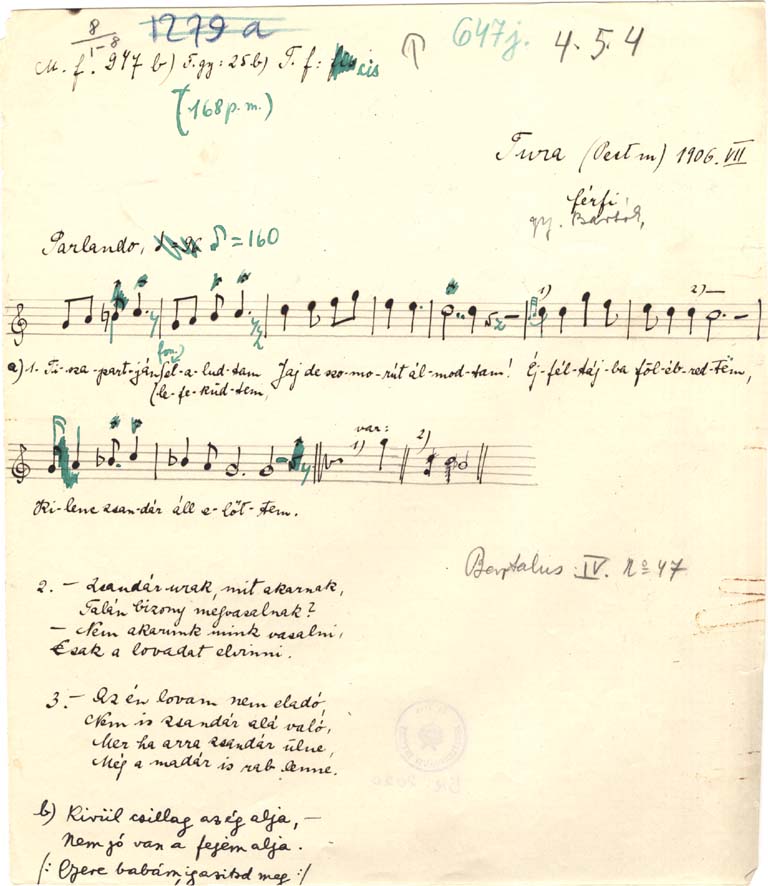 8
1-8
1279 a
647j. 4.5.4
M. f. 947 b) T.gy: 25b) T. f: cis
(168 p.m.)
Tura (Pest m) 1906. VII
férfi,
gy. Bartók,
Parlando, ♪=160
1) 2)
fon.)
a) 1. Ti-sza-part-ján el-a-lud-tam Jaj de szo-mo-rút ál-mod-tam! Éj-fél-táj-ba föl-éb-red-tëm,
(le-fe-küd-tem,
var: 1) 2)
Ki-lenc zsan-dár áll e-lőt-tem.
Bartalus IV. No 47
2. – Zsandár urak, mit akarnak,
Talán bizony megvasalnak?
– Nem akarunk mink vasalni,
Csak a lovadat elvinni.
3. – Az én lovam nem eladó,
Nem is zsandár alá való,
Mer ha arra zsandár ülne,
Még a madár is rab lenne.
b) Kivül csillag az ég alja, –
Nem jó van a fejem alja.
/: Gyere babám, igazitsd meg :/